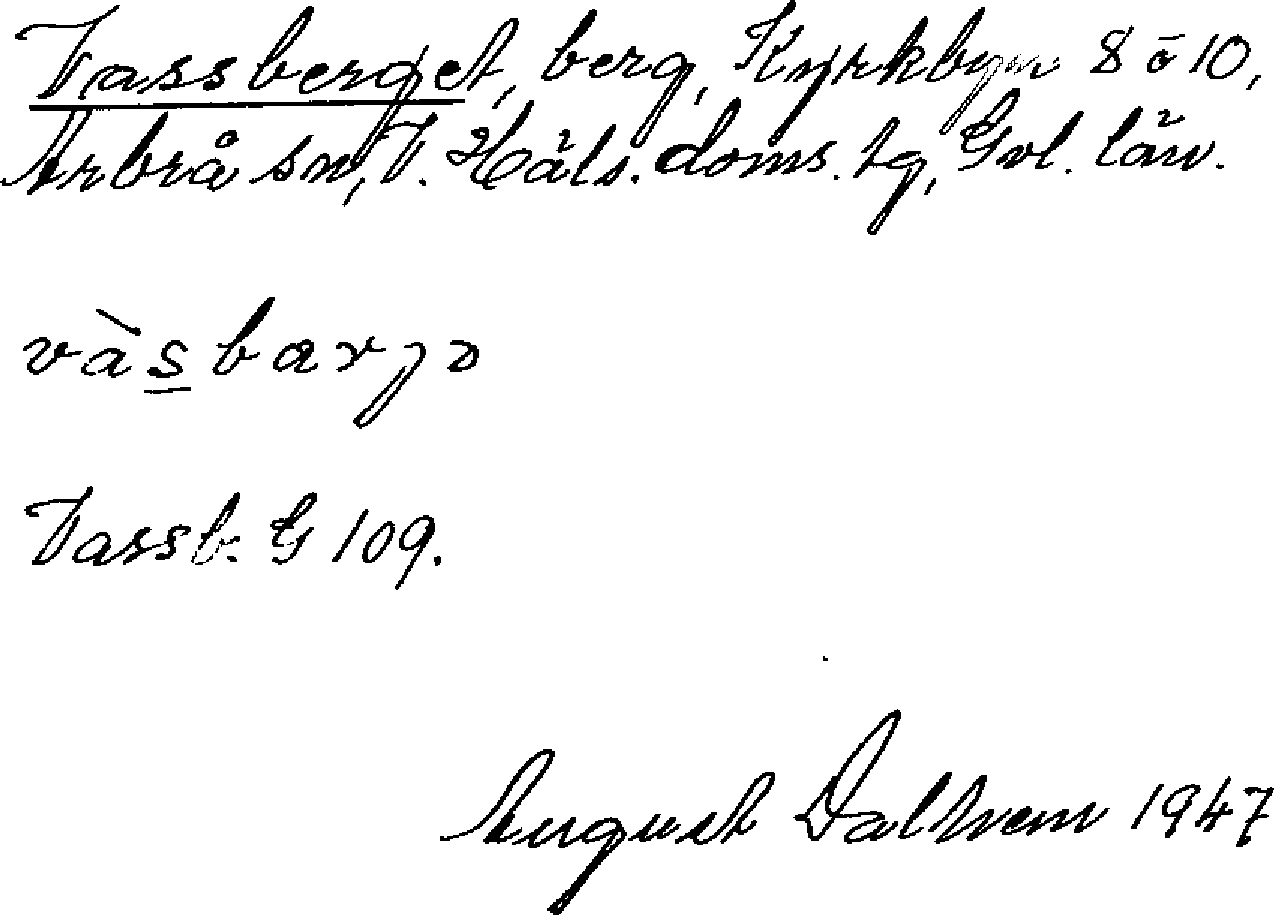 Vassberget, berg, Kyrkbyn 8 o 10,
Arbrå sn, V. Häls. doms. tg, Gvl. län.
vàsbarjə
Vassb. G 109.
August Dalhem 1947